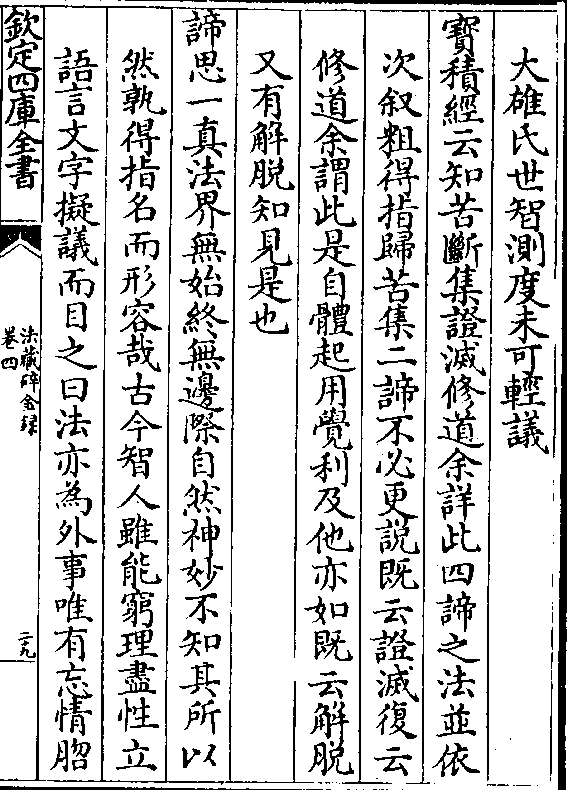 大雄氏世智測度未可輕議
寳積經云知苦斷集證滅修道余詳此四諦之法並依
次叙粗得指歸苦集二諦不必更説既云證滅復云
修道余謂此是自體起用覺利及他亦如既云解脱
又有解脱知見是也
諦思一真法界無始終無邊際自然神妙不知其所以
然孰得指名而形容哉古今智人雖能窮理盡性立
語言文字擬議而目之曰法亦為外事唯有忘情脗
欽定四庫全書
法藏碎金録
卷四
二十九